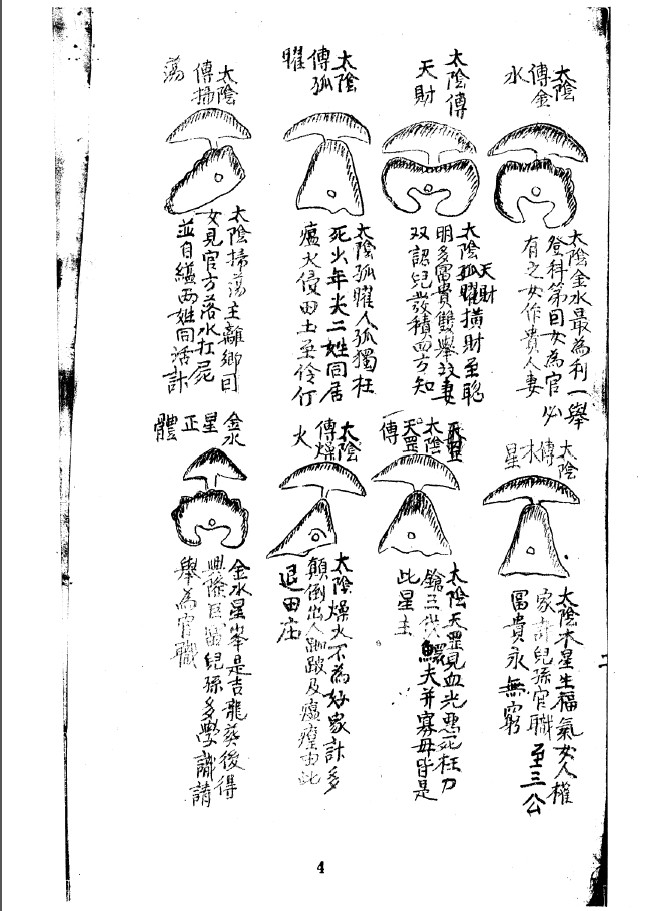 太陰
傳金
水
太陰金水最為利一舉
登科第因女為官必
有之女作貴人妻
太陰傳
天財
天財
太陰孤曜橫財至聡
明多富貴雙舉玟妻
双認兒發積四方知
太陰
傳孤
曜
太陰孤曜人孤獨枉
死出年尖二姓同居
瘟火侵田土至伶仃
太陰
傳掃
蕩
太陰掃蕩主離鄉因
女見官方落水扛屍
並自縊两姓同活計
太陰
傳木
星
太陰木星生福氣女人權
家計兒孫官職至三公
富貴永無窮
太陰
天罡
傳
太陰天罡見血光惡死枉刀
鎗三代鰥夫并寡母皆是
此星主
太陰
傳燥
火
太陰燥火不為好家計多
顛倒出人跏跛及瘟㾮由此
退田庄
金水
星正
體
金水星峯是吉龍葵後得
興隆巨富兒孫多學識請
舉為官職
二
4